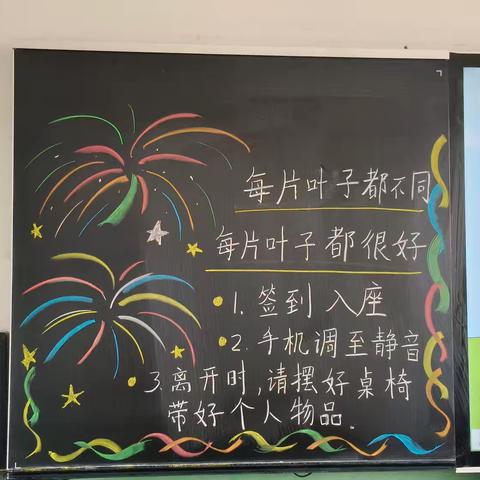 每片叶子都不同
每片叶子都很好
1. 签到入座
2. 手机调至静音
3. 离开时,请摆好桌椅
带好个人物品.